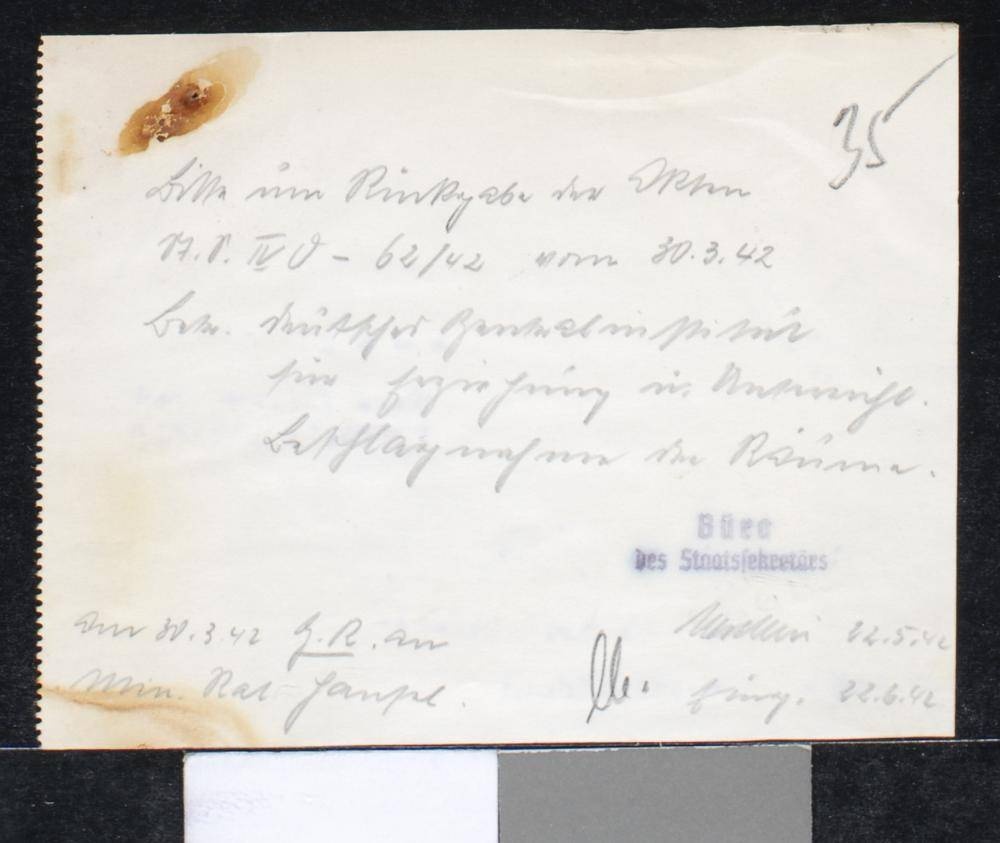 35
Bitte um Rückgabe der Akten
St.S. IV O - 62/42 vom 30.3.42
Betr. deutsches Zentralinstitut
für Erziehung u. Unterricht.
Beschlagnahme der Räume.
Büro
des Staatssekretärs
Am 30.3.42 G.R. an
Min. Rat
22.5.42
22.6.42